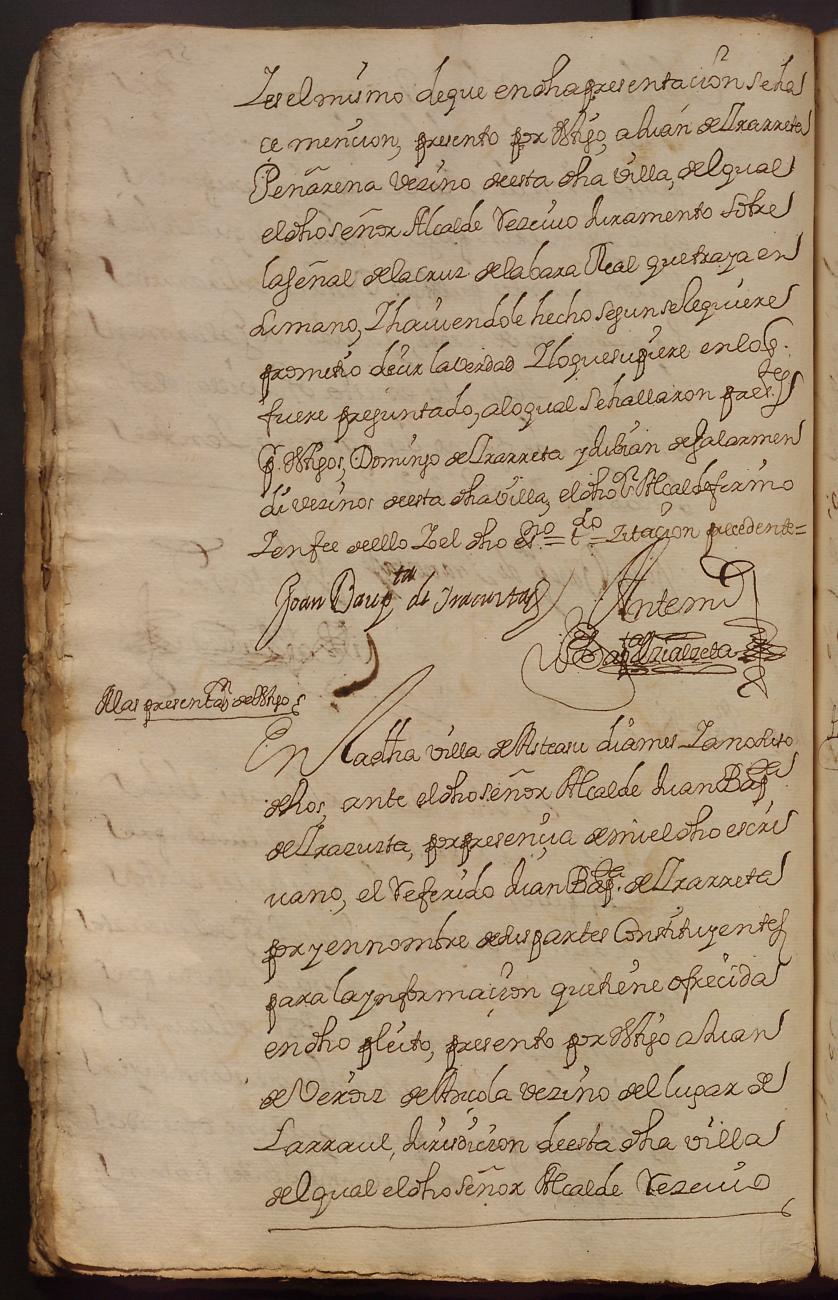 Y es el mismo de que en dha presentaçion se ha
ce mencion, presento por testigo, a Juan de Yrarreta
Peñarena vezino deesta dha villa, del qual
el dho señor Alcalde Reziuio Juramento sobre
la señal de la cruz de la bara Real que traya en
su mano, Y hauiendole hecho segun se le quiere
prometio decir la verdad Y lo que supiere en lo q.
fuere preguntado, a lo qual se hallaron pres.tes
p. testigos, Domingo de Yrarreta y Julian de Galarmen
di vezinos deesta dha villa, el dho Sr Alcalde firmo
Y en fee deello Yo el dho es.no = t.do = Zitaçion precedente =
Joan Baup.ta de Yracusta
Ante mi
Bap.ta Yrialzeta
Mas presentaon de testigos
En La dha villa de Asteasu dia mes Y año dicho
dhos, ante el dho señor Alcalde Juan Bap.ta
de Yrazusta, por presençia de mi el dho escri
uano, el Referido Juan Bap.ta de Yrarreta
por y en nombre de sus partes Constituyentes
para la ynformacion que tiene ofrecida
en dho pleito, presento por testigo a Juan
de Verdiz de Arcola vezino del lugar de
Larraul, Jurisdicion deesta dha villa
del qual el dho señor Alcalde Reziuio